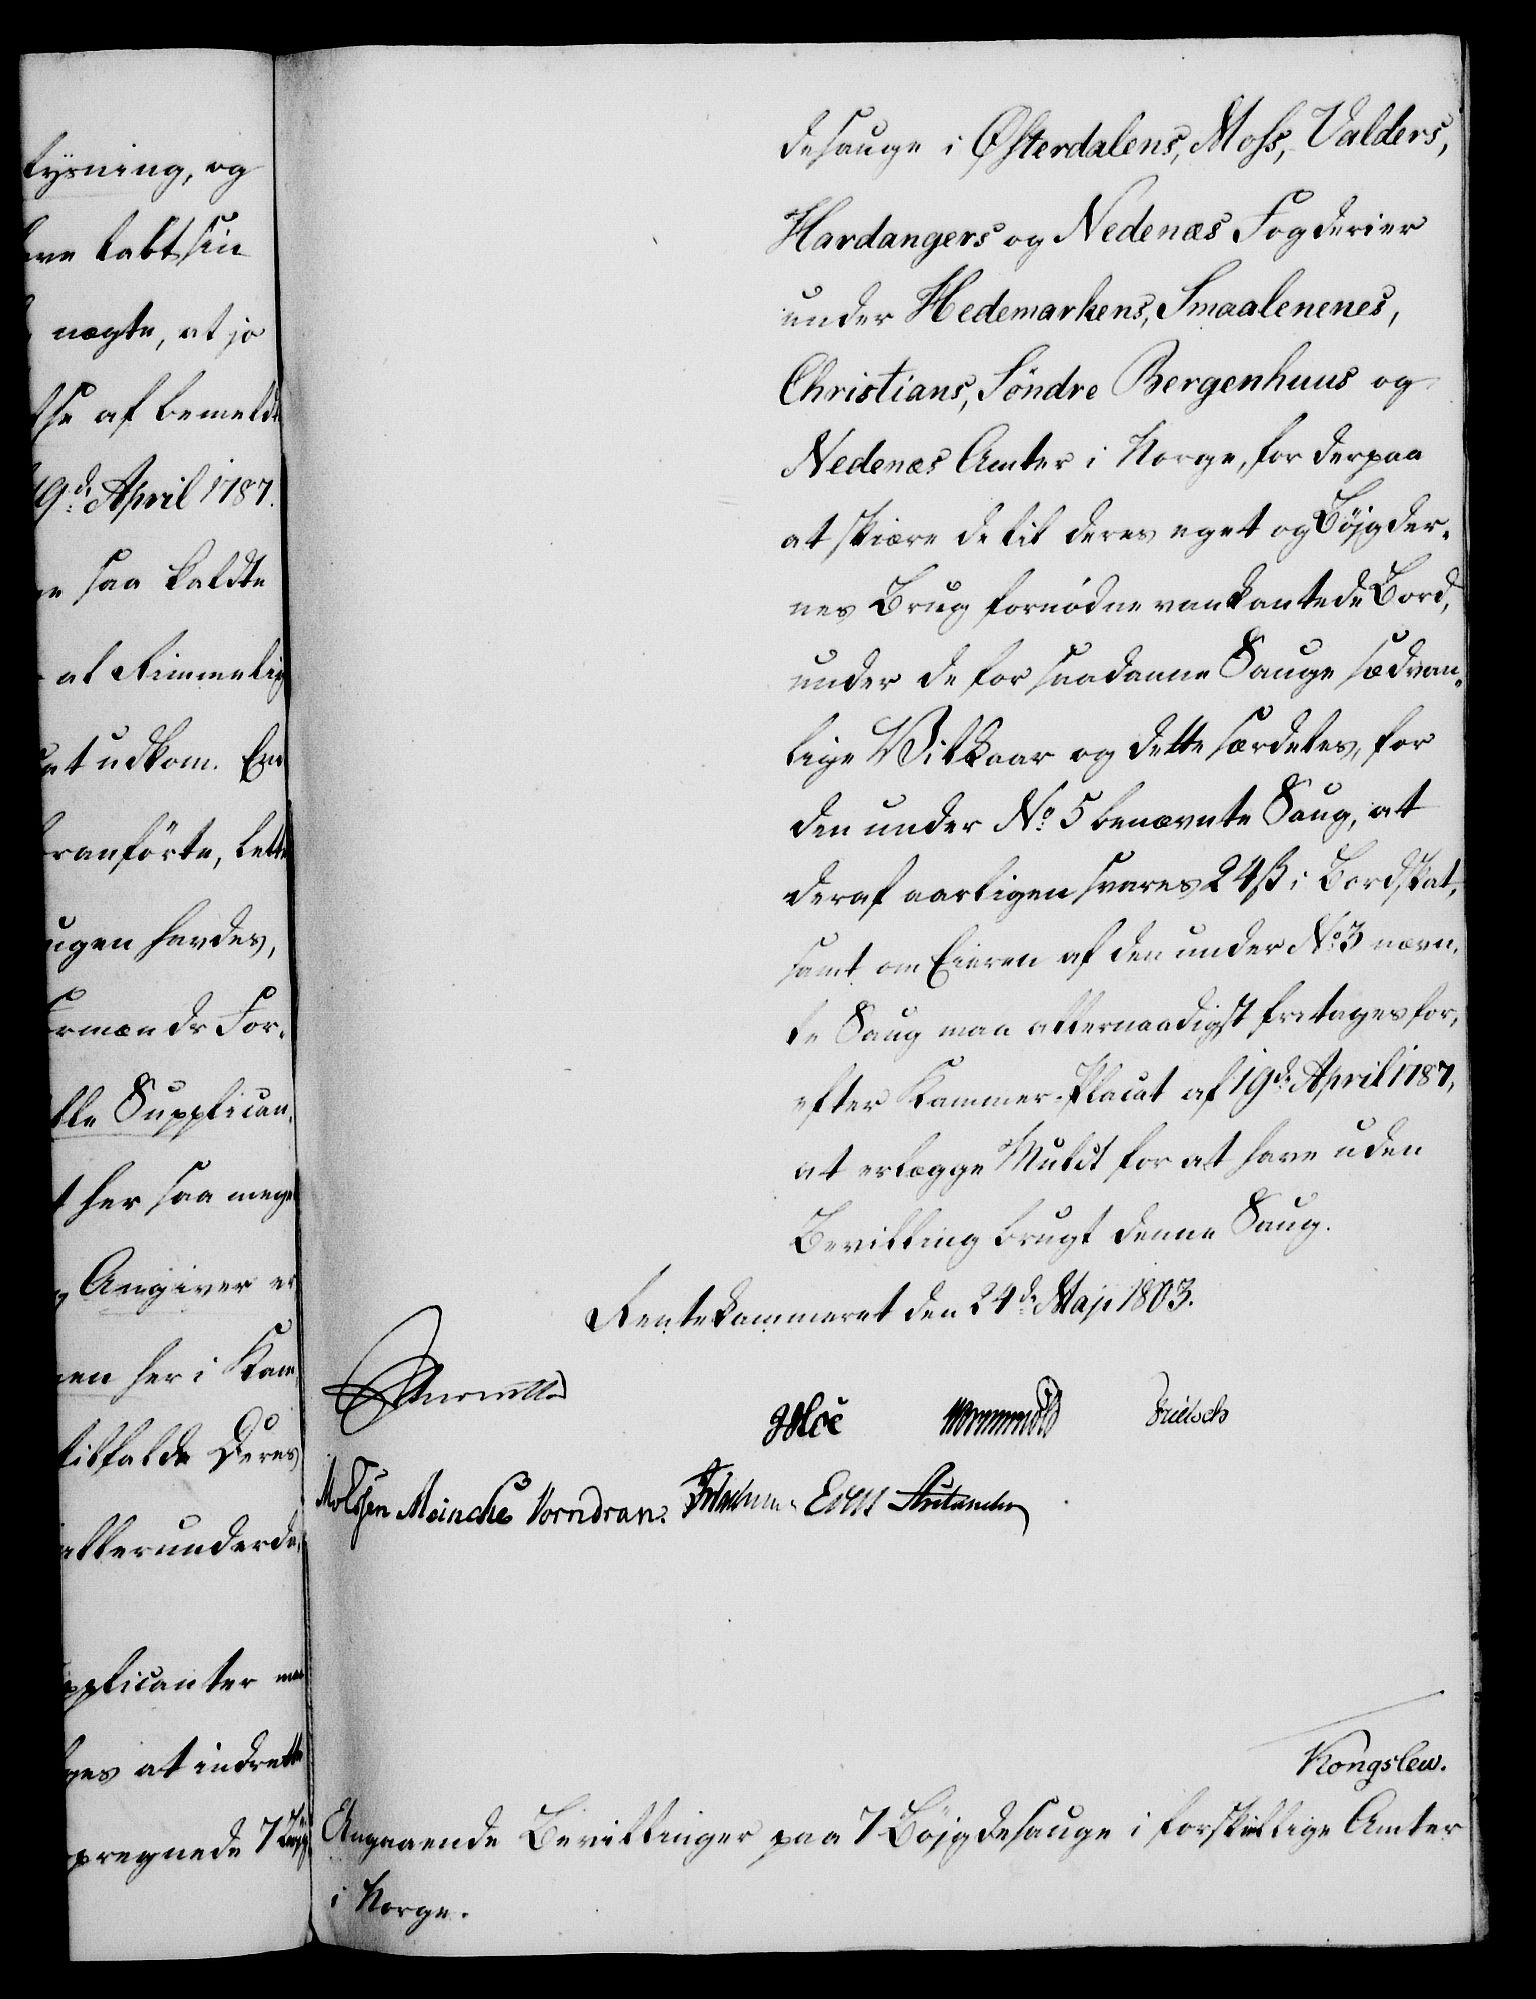 tysning, og
tabt sin
nægte, at jo
af bemeldte
19de April 1787.
saa kaldte
at Rimmelig
udkom. Em
ranførte, lette
ugen havdes,
For-
Supplican-
her saa meget
Angiver er
her i Kam-
tilfalde Deres
allerunderda-
pplicanter maa
ges at indrette
pregnede 7
desauge i Østerdalens, Moss, Valders,
Hardangers og Nedenæs Fogderier
under Hedemarkens, Smaalenenes,
Christians, Söndre Bergenhuus og
Nedenæs Amter i Norge, for derpaa
at skiære de til deres eget og Böjgder-
nes Brug fornödne vankantede Bord,
under de for saadanne Sauge sædvan-
lige Vilkaar og dette særdeles, for
den under No. 5 benævnte Saug, at
deraf aarligen svares 24 ß i Bordskat,
samt om Eieren af den under No. 3 nævn-
te Saug maa allernaadigst fritages for,
efter Kammer-Placat af 19de April 1787,
at erlægge Mulct for at have uden
Bevilling brugt denne Saug.
Rentekammeret den 24de Maji 1803.
Hoë Wormskiold Frietsch
Moltzen Meincke Vorndran.
Kongslew.
Angaaende Bevillinger paa 7 Böjgdesauge i forskiellige Amter
i Norge.